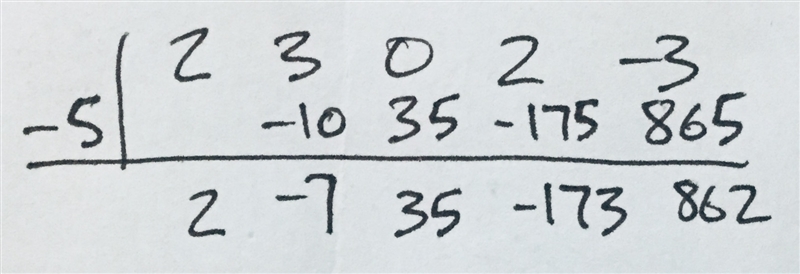 2 3 0 2 -3
-5 -10 35 -175 865
2 -7 35 -173 862